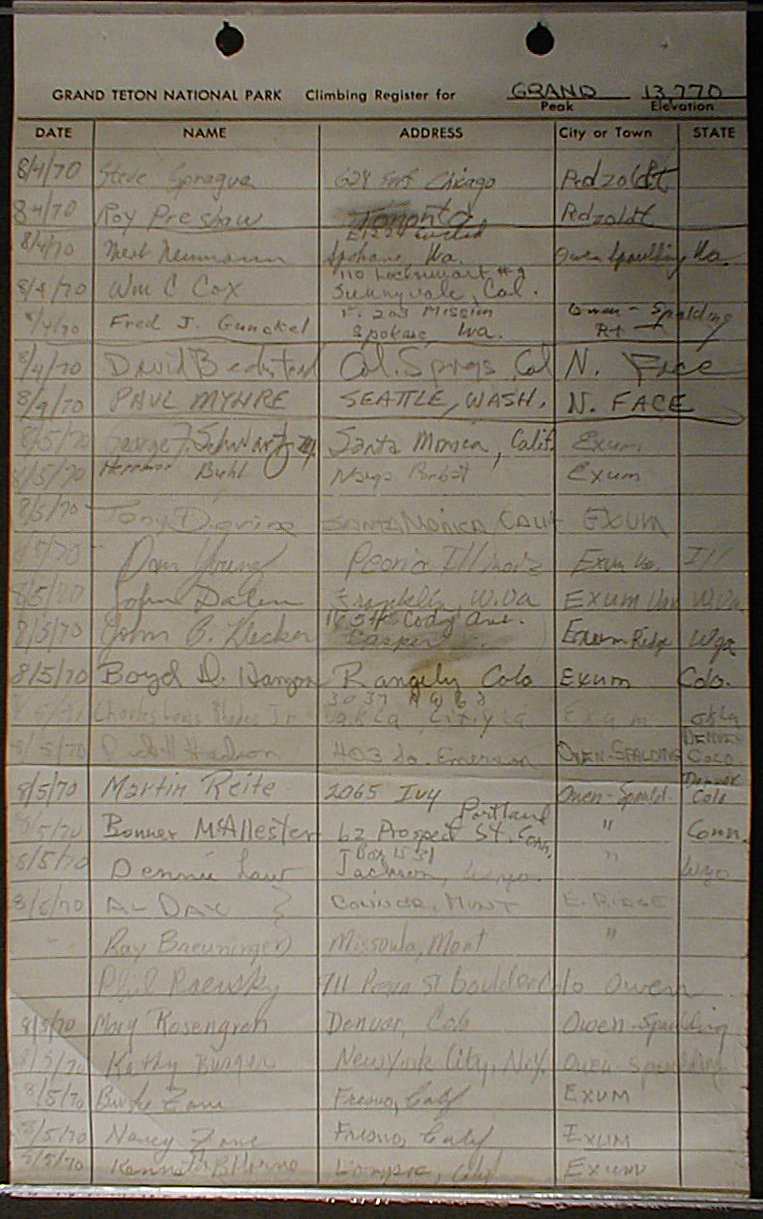 GRAND TETON NATIONAL PARK Climbing Register for GRAND 13,770
Peak Elevation
DATE NAME ADDRESS City or Town STATE
8/4/70 Steve Sprague 628 Chicago Pedzoldt
8/4/70 Roy Preshaw Toronto Pdzoldt
E1224 Euclid
8/4/70 Neumann Spokane, Wa. Owen Spaulding Wa.
110 Lockewart #9
8/4/70 Wm C Cox Sunnyvale, Cal.
203 Mission Owen - Spalding
8/4/70 Fred J. Gunckel Spokane, Wa. Rt
8/4/70 David Bechstead Col. Spregs, Col N. Face
8/4/70 PAUL MYHRE SEATTLE, WASH. N. FACE
8/5/70 George J. Schwartz III Santa Monica, Calif. Exum
8/5/70 Herman Buhl Nanga Parbat Exum
8/5/70 Tony Devine SANTA MONICA, CALIF EXUM
8/5/70 Young Peoria Illinois Exum Ill
8/5/70 John Franklin, W.Va EXUM W.Va.
1654 Cody Ave.
8/5/70 John B. Decker Casper Exum Ridge Wyo
8/5/70 Boyd D. Rangely Colo Exum Colo.
3037 NW 62
8/5/70 Charles Jr. Okla City Exum Okla
DENVER
8/5/70 Hudson 403 So Emerson OWEN-SPALDING COLO
Denver
8/5/70 Martin Reite 2065 Ivy Owen-Spauld. Colo
Portland
8/5/70 Bonner McAllester 62 Prospect St. Conn. " Conn.
Box 1551
8/5/70 Dennie Law Jackson, Wyo. " Wyo
8/5/70 AL DAY BONNER, MONT E. RIDGE
Ray Breuninger Missoula, Mont "
Phil 711 St boulder Colo Owen
8/5/70 Mary Rosengren Denver, Colo Owen-Spalding
8/5/70 Kathy Burger New York City, N.Y. Owen Spaulding
8/5/70 Zane Fresno, Calif EXUM
8/5/70 Nancy Zane Fresno, Calif EXUM
8/5/70 Kenneth B. Horne Lompoc, Calif Exum